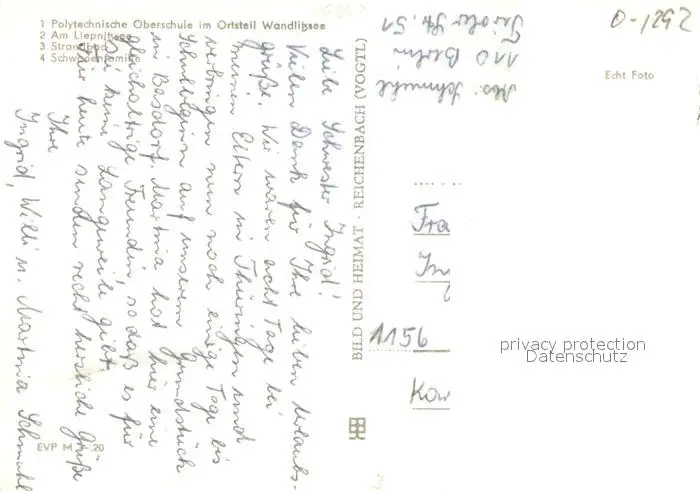 1 Polytechnische Oberschule im Ortsteil Wandlitzsee
2 Am Liepnitzsee
3 Strandbad
4 Schwanenfamilie
Liebe Schwester Ingrid!
Vielen Dank für Ihre lieben Urlaubs-
grüße. Wir waren acht Tage bei
meinen Eltern in Thüringen und
verbringen nun noch einige Tage bis
Schulbeginn auf unserem Grundstück
in Basdorf. Martina hat hier eine
gleichaltrige Freundin, sodaß es für
sie keine Langeweile gibt.
Für heute senden recht herzliche Grüße
Ihre
Ingrid, Willi u. Martina Schmuhl
EVP M -.20
BILD UND HEIMAT · REICHENBACH (VOGTL)
Abs. Schmuhl
110 Berlin
Str. 51
0-1292
Echt Foto
Fra
In
1156
Kar
privacy protection
Datenschutz